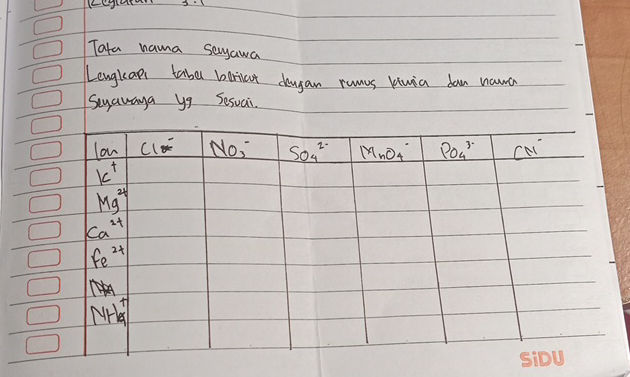 Kegiatan 3.1
Tata nama senyawa
Lengkapi tabel berikut dengan rumus kimia dan nama
senyawanya yg sesuai.
Ion Cl⁻ NO₃⁻ SO₄²⁻ MnO₄⁻ PO₄³⁻ CN⁻
K⁺
Mg²⁺
Ca²⁺
Fe²⁺
NH₄⁺
SiDU